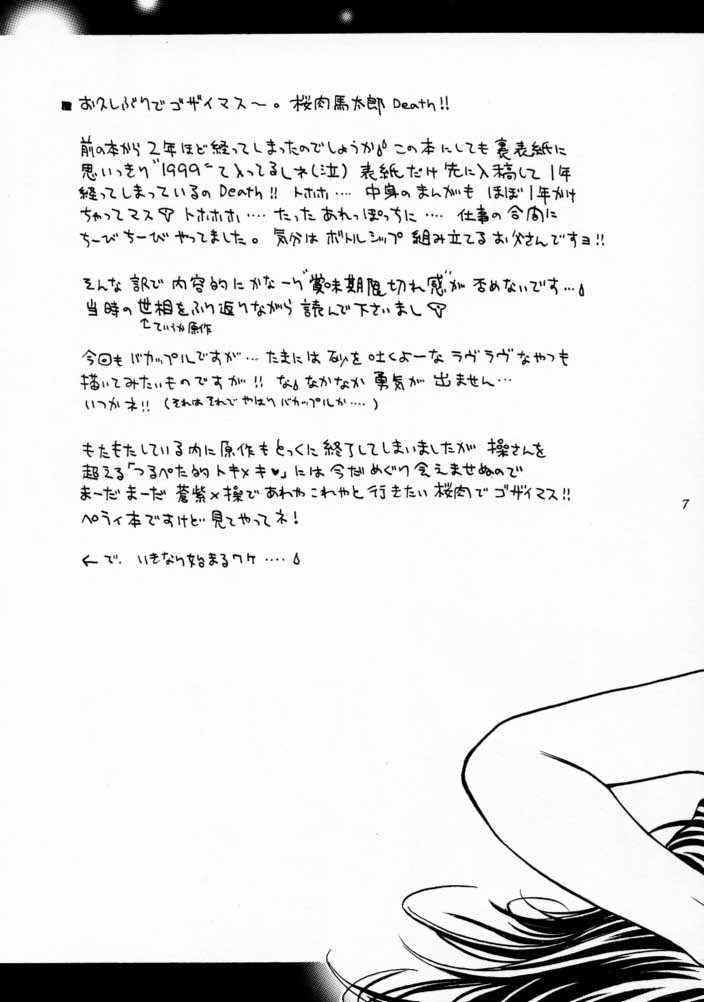 ■ お久しぶりでゴザイマス〜。桜肉馬太郎 Death!!
前の本から2年ほど経ってしまったのでしょうか この本にしても裏表紙に
思いっきり"1999"て入ってるしネ(泣) 表紙だけ先に入稿して1年
経ってしまっているのDeath!! トホホ‥‥ 中身のまんがも ほぼ1年かけ
ちゃってマス トホホホ‥‥ たったあれっぽっちに‥‥ 仕事の合間に
ちーびちーびやってました。気分はボトルシップ組み立てるお父さんですヨ!!
そんな訳で内容的にかな〜り"賞味期限切れ感"が否めないです‥‥
当時の世相をふり返りながら読んで下さいまし
↑ていうか原作
今回もバカップルですが‥‥ たまには砂を吐くよーなラヴラヴなやつも
描いてみたいものですが!! な、なかなか勇気が出ません‥‥
いつかネ!! (それはそれでやはりバカップルか‥‥)
もたもたしている内に原作もとっくに終了してしまいましたが 操さんを
超える「つるぺた的トキメキ♥」には今だめぐり会えませぬので
まーだまーだ 蒼紫×操であれやこれやと行きたい桜肉でゴザイマス!!
ペラィ本ですけど見てやってネ!
← で、いきなり始まるワケ‥‥
7